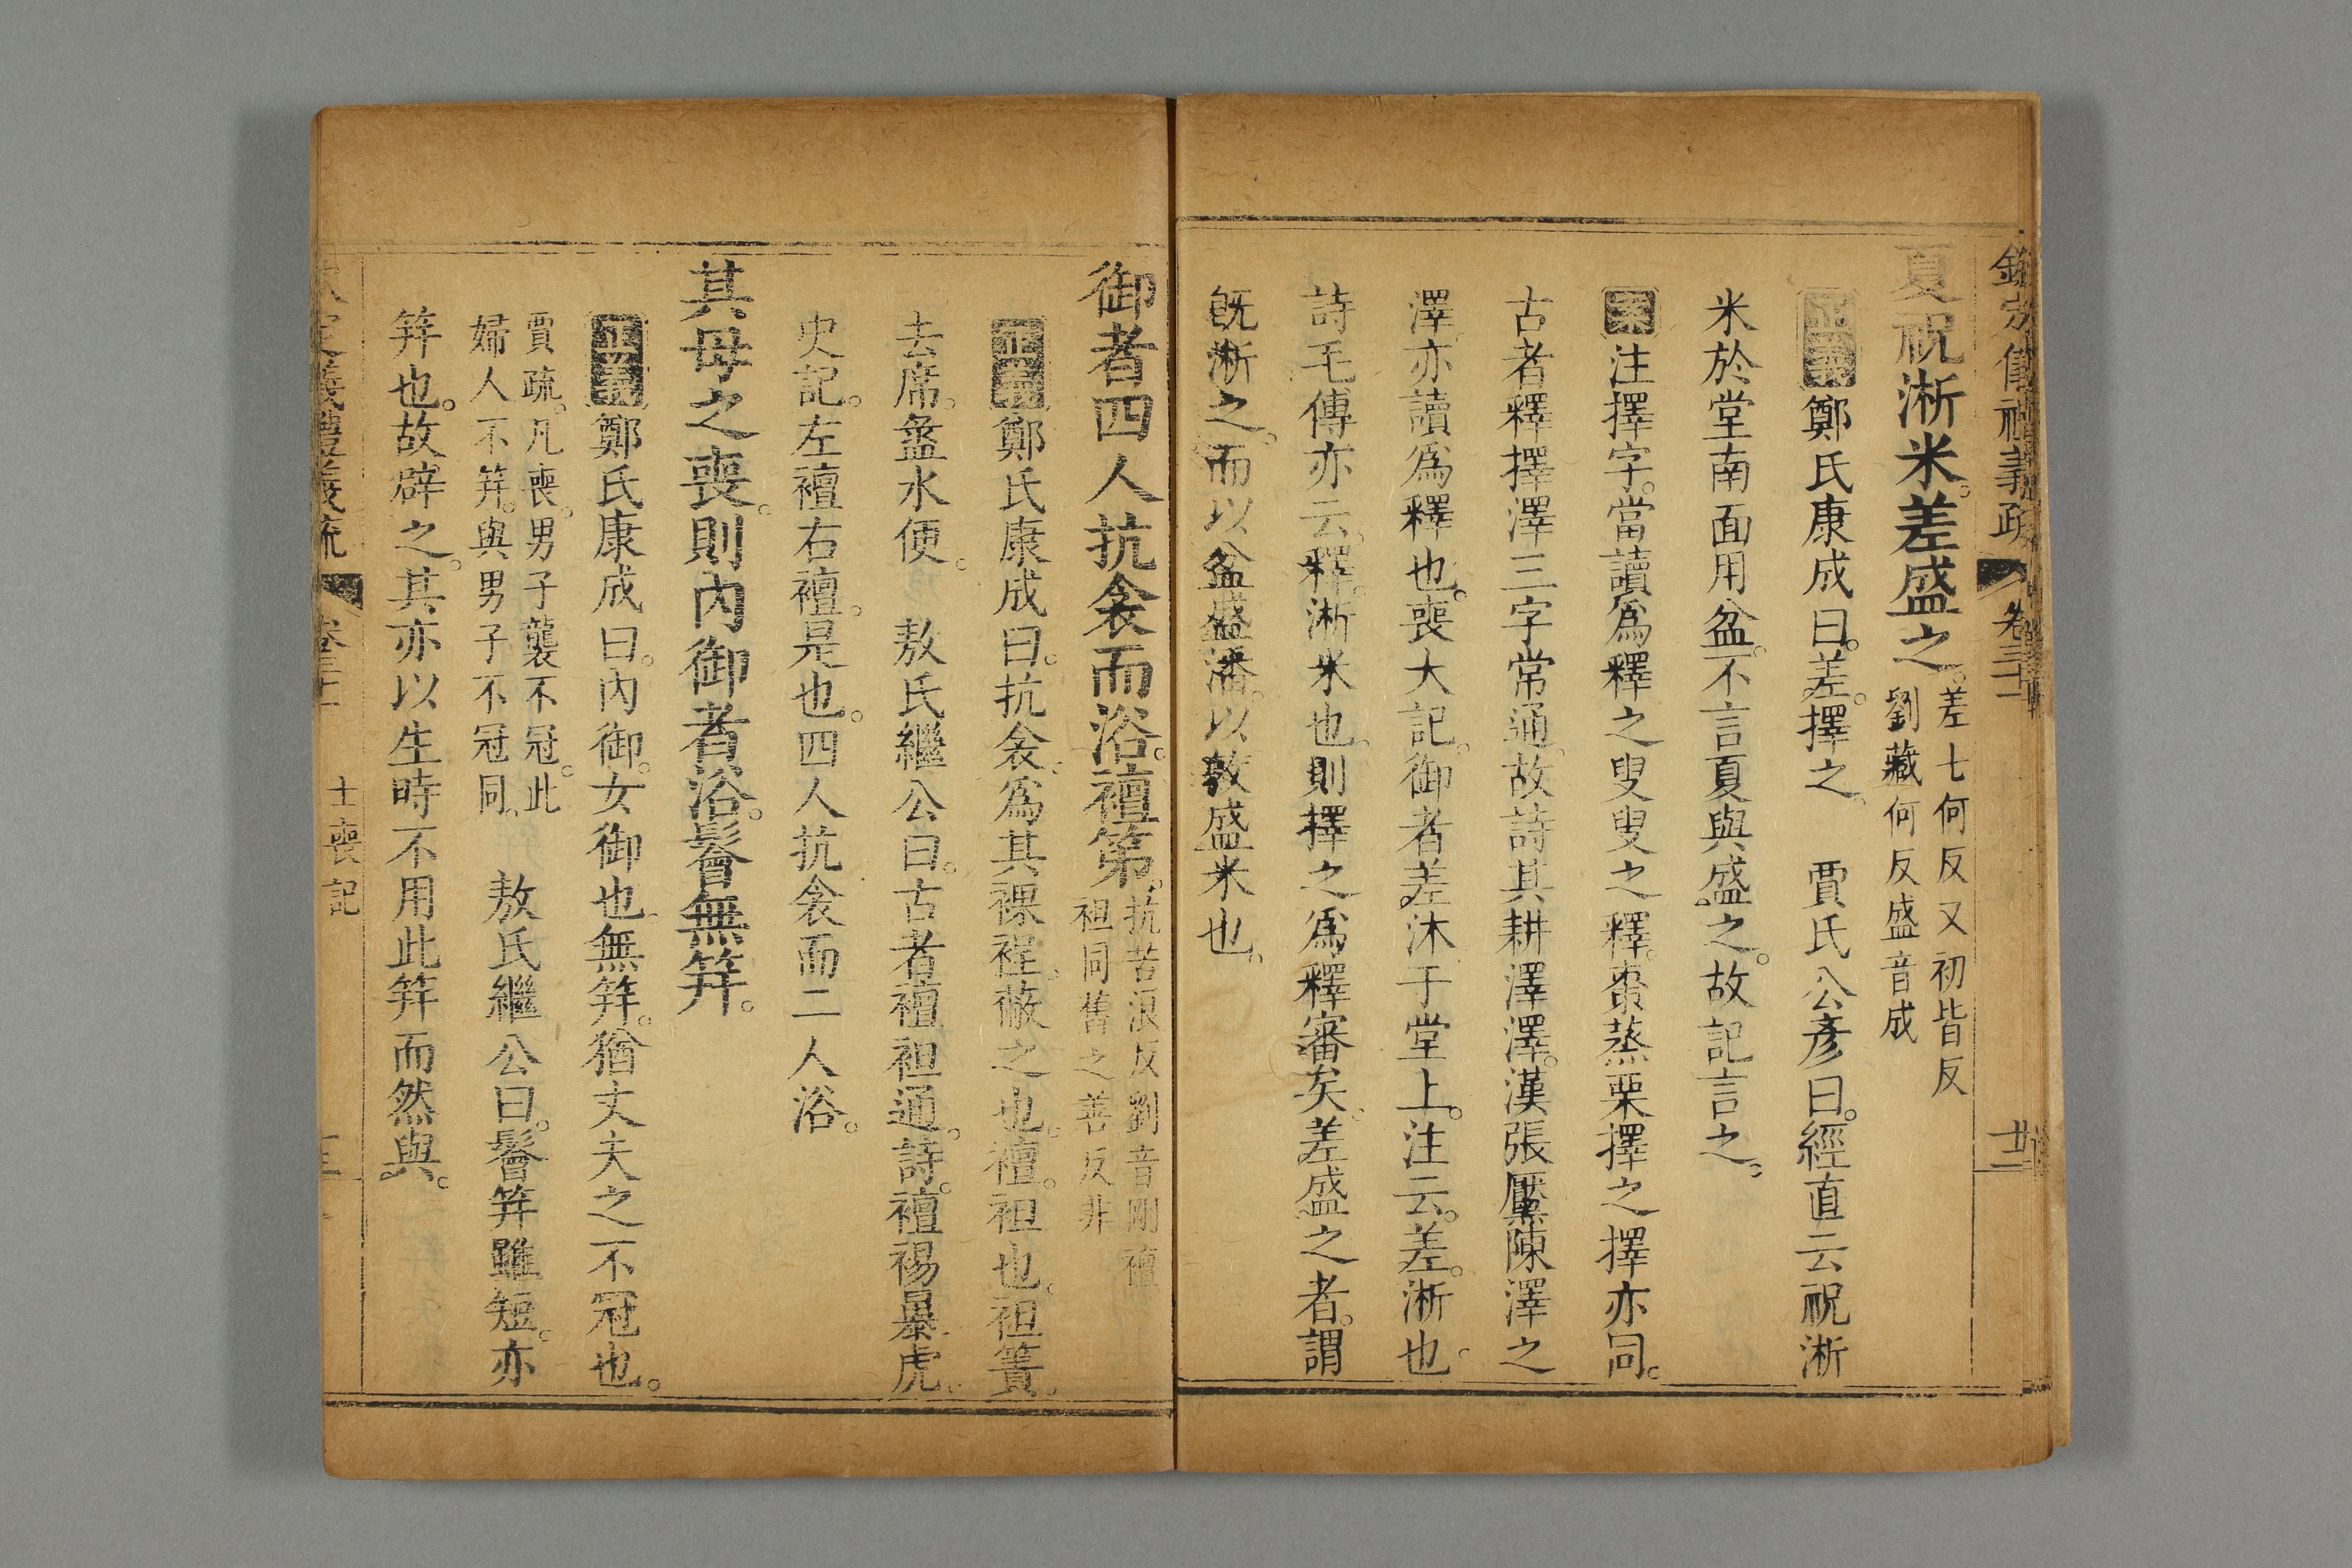 欽定儀禮義疏　卷三十一　廿二
夏祝淅米。差盛之。差七何反又初皆反
劉藏何反盛音成
正義鄭氏康成曰。差。擇之。　賈氏公彥曰。經直云祝淅
米於堂南面用盆。不言夏與盛之。故記言之。
案注擇字。當讀爲釋之叟叟之釋。棗蒸栗擇之擇亦同。
古者釋擇澤三字常通。故詩其耕澤澤。漢張壓陳澤之
澤。亦讀爲釋也。喪大記。御者差沐于堂上。注云。差。淅也。
詩毛傳亦云。釋。淅米也。則擇之爲釋審矣。差盛之者。謂
旣淅之。而以盆盛潘。以敦盛米也。
御者四人抗衾而浴。襢第。抗苦浪反劉音剛襢
袒同舊之善反非
正義鄭氏康成曰。抗衾。爲其裸裎。蔽之也。襢。袒也。袒簀。
去席。盝水便。　敖氏繼公曰。古者襢袒通。詩。襢裼暴虎。
史記。左襢右襢。是也。四人抗衾而二人浴。
其母之喪。則內御者浴。鬠無笄。
正義鄭氏康成曰。內御。女御也。無笄。猶丈夫之不冠也。
賈疏。凡喪。男子襲不冠。此
婦人不笄。與男子不冠同。　敖氏繼公曰。鬠笄雖短。亦
笄也。故辟之。其亦以生時不用此笄而然與。
欽定儀禮義疏　卷三十一　士喪記